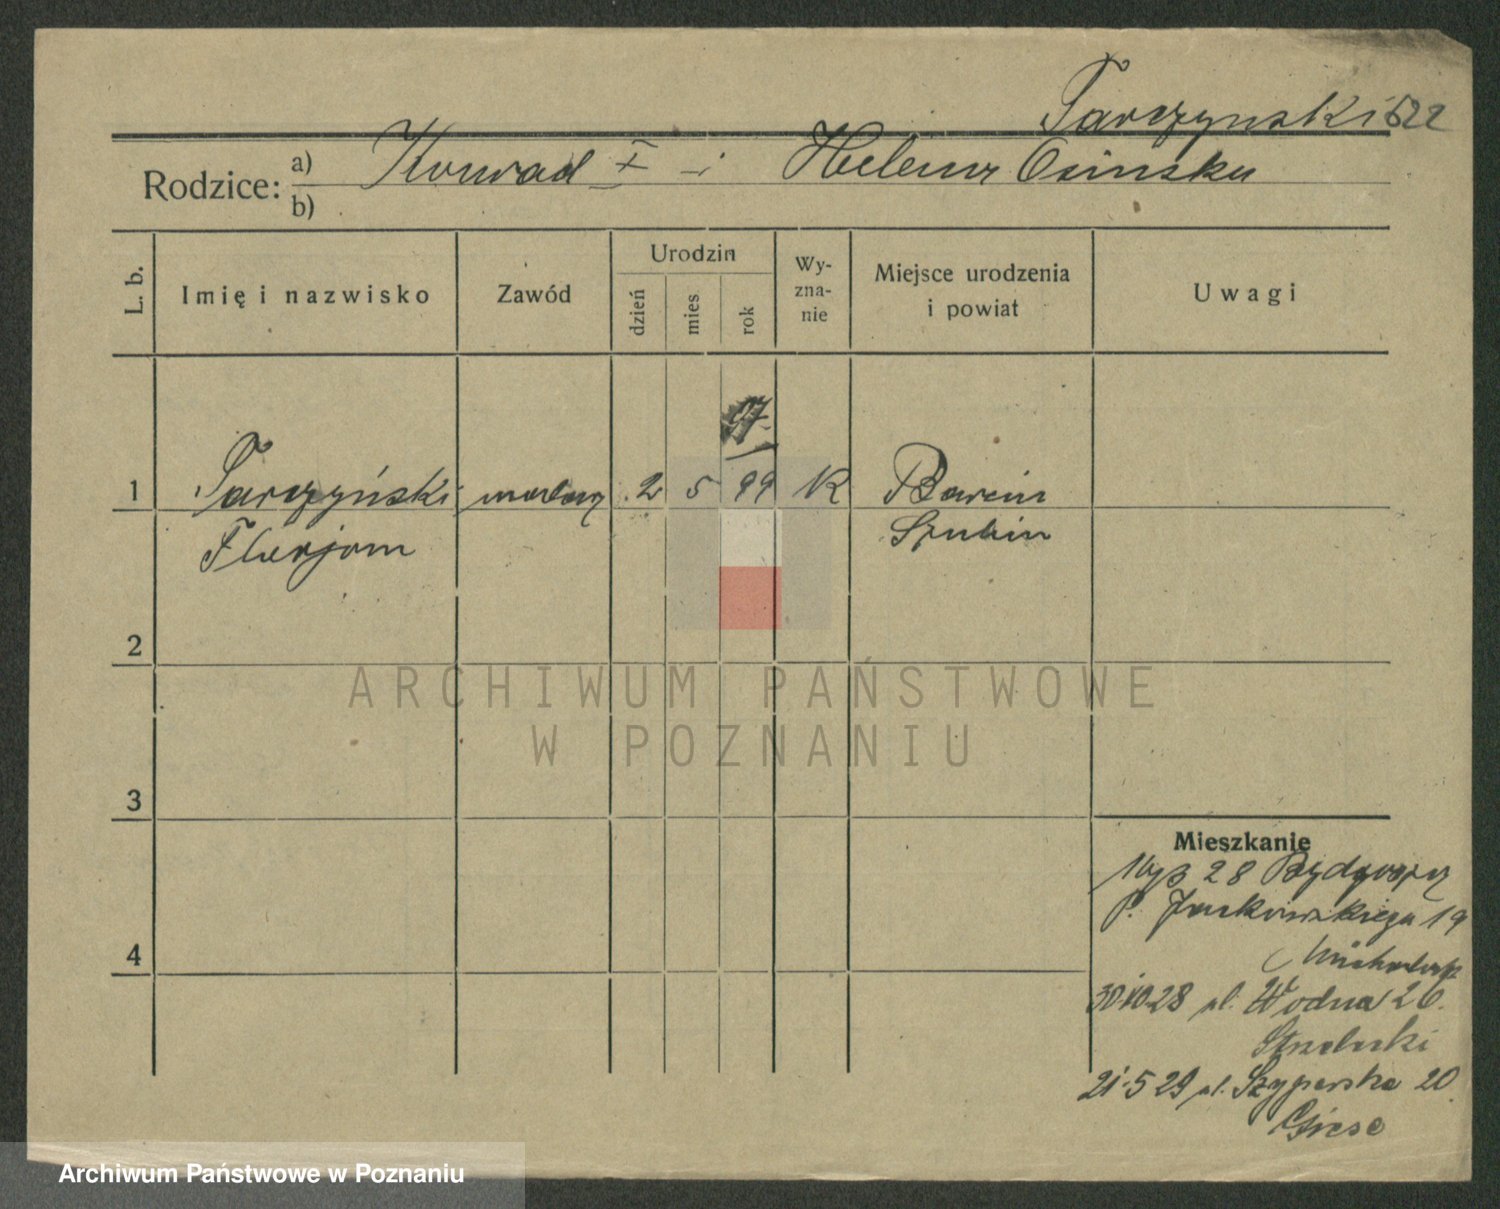 Tarczynski 522
Rodzice: a) Konrad + i Helena Osinska
b)
L. b.
Imię i nazwisko
Zawód
Urodzin
dzień
mies
rok
Wy-
zna-
nie
Miejsce urodzenia
i powiat
Uwagi
97
1 Tarczyński malarz 2 5 99 K Barcin
Florjan Szubin
2
3
4
Mieszkanie
28 Bydgoszcz
P. Jackowskiego 19
30 10 28 ul. Wodna 26.
21.5 29 ul. Szyperska 20
Giese
ARCHIWUM PAŃSTWOWE
W POZNANIU
Archiwum Państwowe w Poznaniu